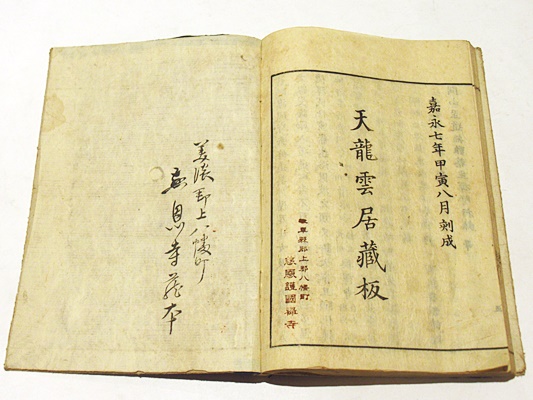 嘉永七年甲寅八月刻成
天龍雲居藏板
岐阜縣郡上郡八幡町
慈恩護國禅寺
美濃郡上八幡町
慈恩寺蔵本